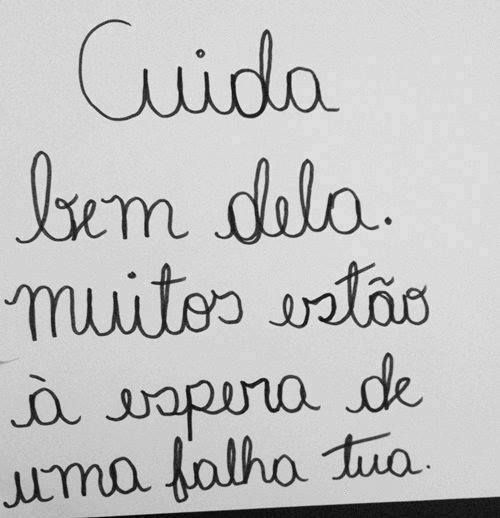 Cuida
bem dela.
muitos estão
à espera de
uma falha tua.